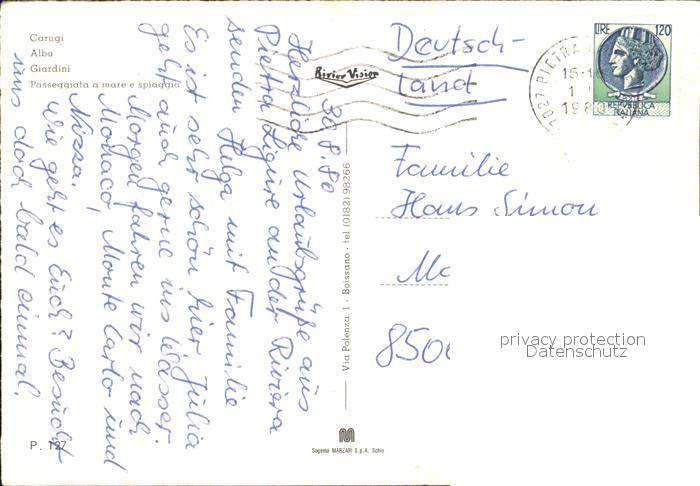 Carugi
Alba
Giardini
Passeggiata a mare e spiaggia
30.8.80
Herzliche Urlaubsgrüße aus
Pietra Ligure an der Riviera
senden Helga mit Familie
Es ist sehr schön hier, Julia
geht auch gerne ins Wasser.
Morgen fahren wir nach
Monaco, Monte Carlo und
Nizza.
Wie geht es Euch? Besucht
uns doch bald einmal.
P. 127
River Visier
Via Polenza, 1 - Boissano - tel (0182) 98266
Sogema MARZARI S.p.A. Schio
LIRE 120
REPVBBLICA
ITALIANA
PIETRA
15-1
198
Deutsch-
land
Familie
Hans Simon
850
privacy protection
Datenschutz